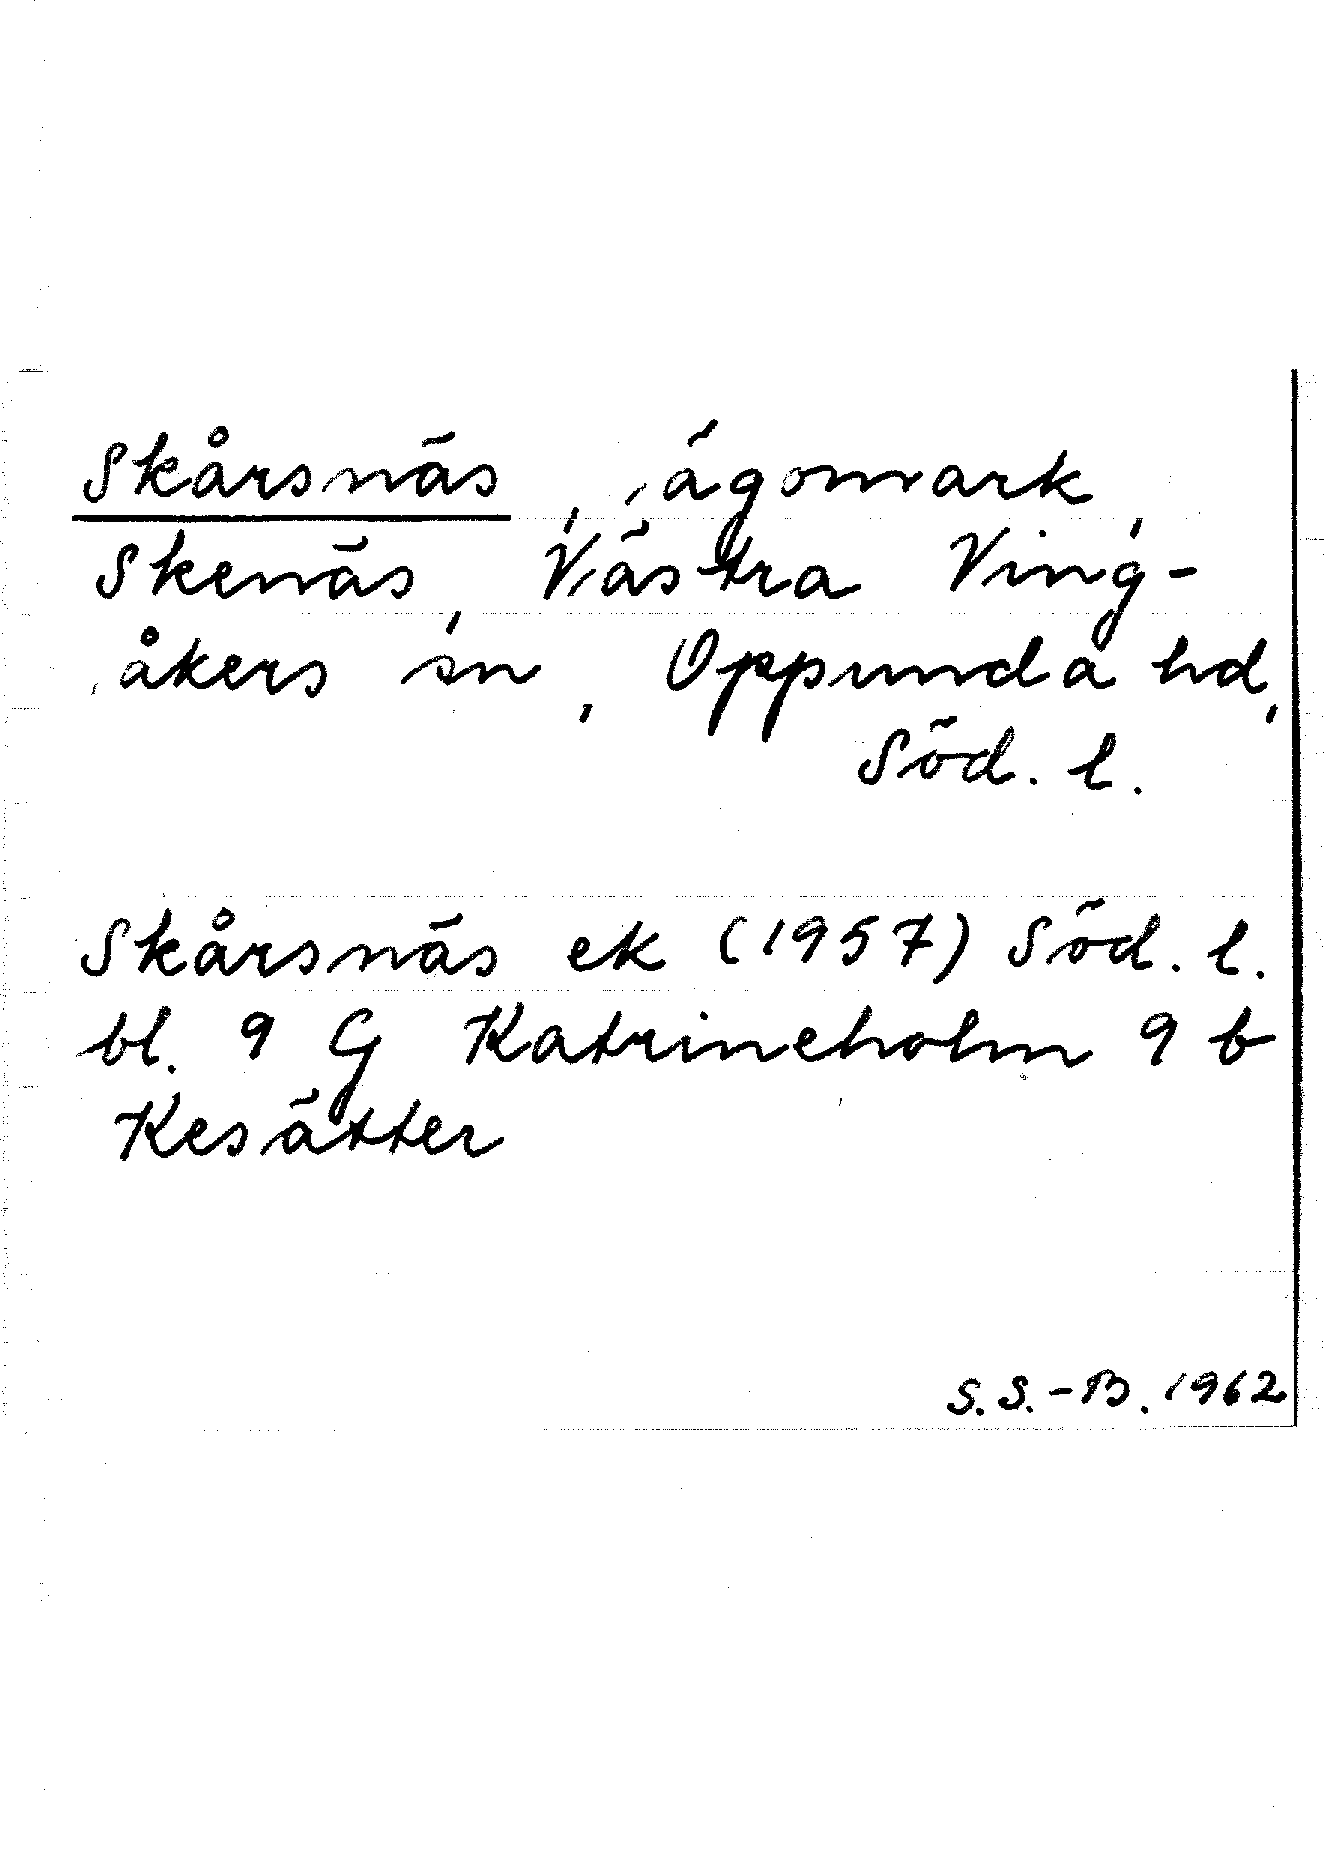 Skårsnäs, ägomark,
Skenäs, Västra Ving-
åkers sn, Oppunda hd,
Söd. l.
Skårsnäs ek (1957) Söd. l.
bl. 9 G Katrineholm 9 b
Kesätter
S. S.-B. 1962